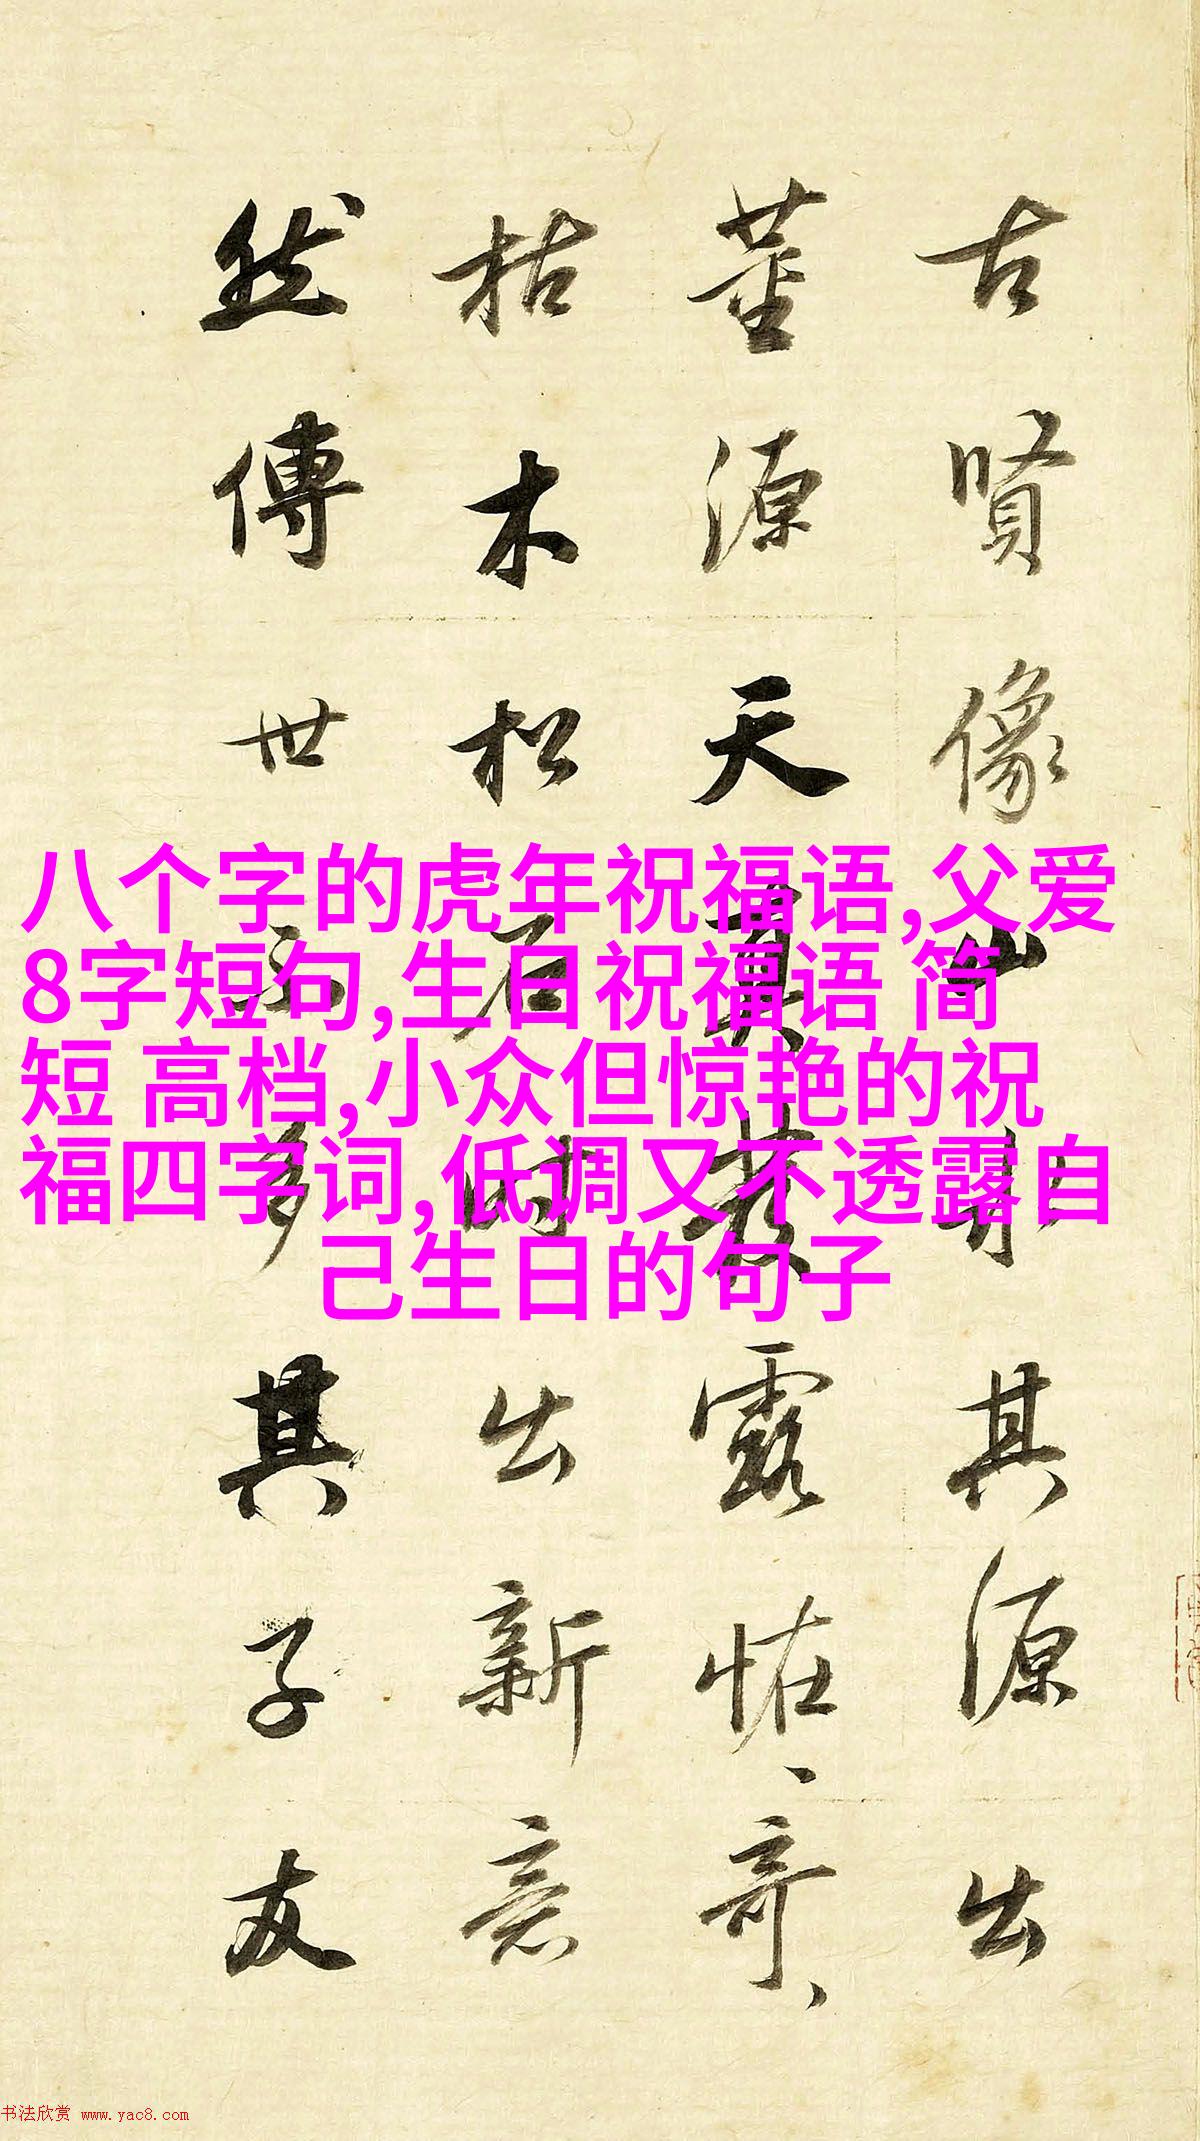 古賢像山其源出
董源天真發露恠奇
枯木松石時出新意
然傳世不多其子友
八个字的虎年祝福语,父爱
8字短句,生日祝福语 简
短 高档,小众但惊艳的祝
福四字词,低调又不透露自
己生日的句子
书法欣赏 www.yac8.com